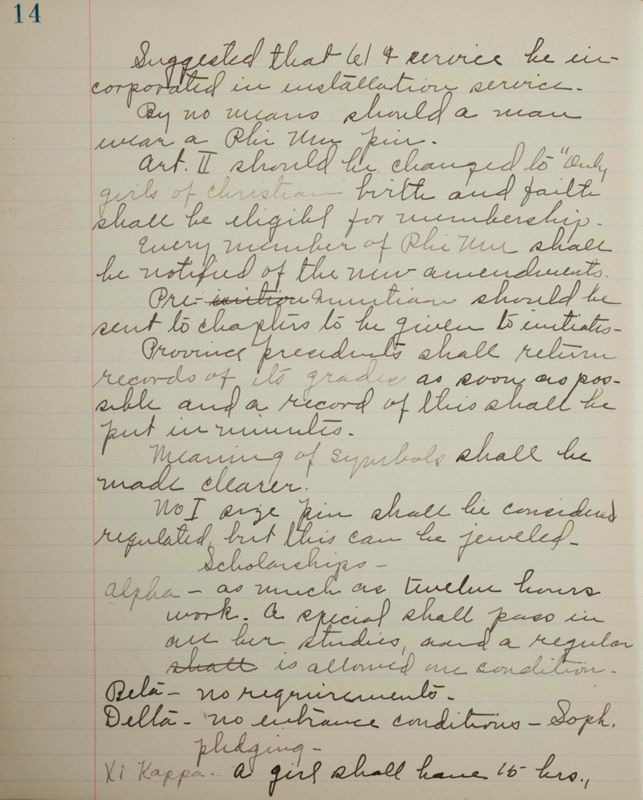 14
Suggested that 61 & service be in-
corporated in installation service.
By no means should a man
wear a Phi Mu pin.
Art. II should be changed to "Only
girls of christian birth and faith
shall be eligibl for membership.
Every member of Phi Mu shall
be notified of the new amendments.
Pre- should be
sent to chapters to be given to initiates-
Province presidents shall return
records of its grades as soon as pos-
sible and a record of this shall be
put in minutes.
Meaning of symbols shall be
made clearer.
No I size pin shall be considered
regulated, but this can be jeweled-
Scholarships-
Alpha - as much as twelve hours
work. A special shall pass in
all her studies, and a regular
shall is allowed one condition.
Beta - no requirements.
Delta - no entrance conditions - Soph.
pledging-
Xi Kappa. A girl shall have 15 hrs.,